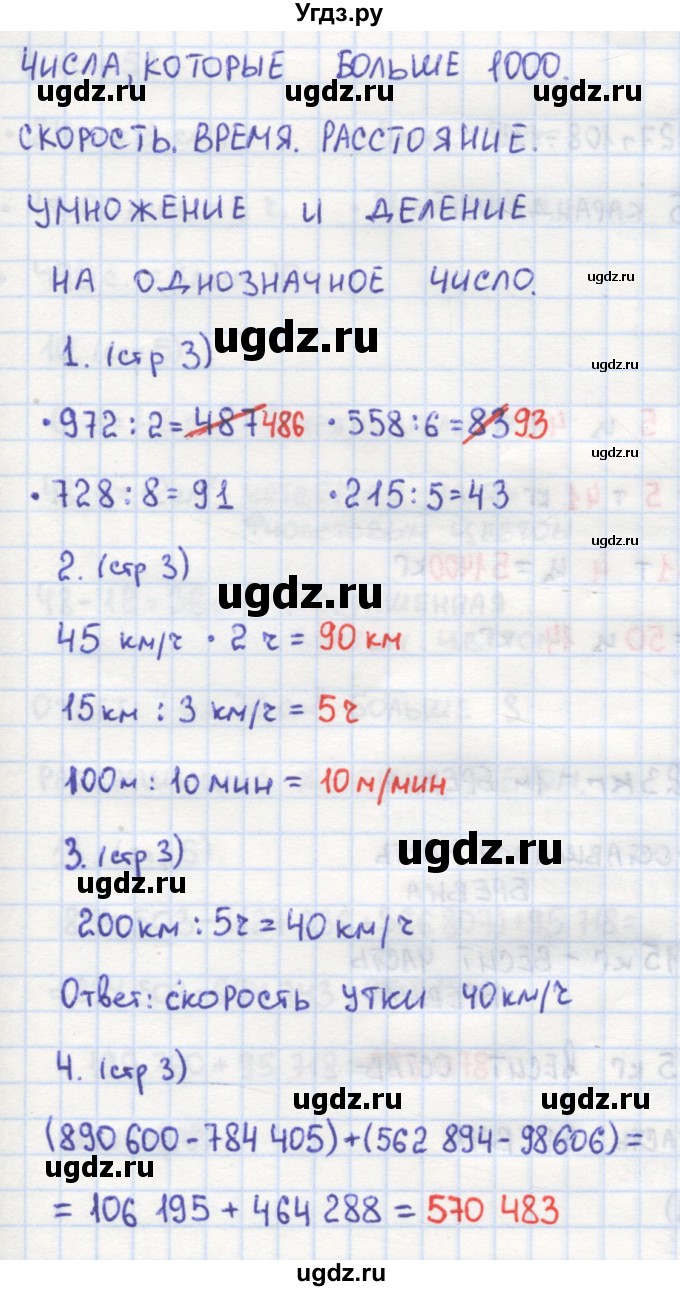 Угдз.ру
ЧИСЛА, КОТОРЫЕ БОЛЬШЕ 1000.
ugdz.ru ugdz.ru ugdz.ru
СКОРОСТЬ. ВРЕМЯ. РАССТОЯНИЕ.
УМНОЖЕНИЕ И ДЕЛЕНИЕ
НА ОДНОЗНАЧНОЕ ЧИСЛО.
ugdz.ru
1. (стр 3)
ugdz.ru
ugdz.ru
• 972 : 2 = 487 486 • 558 : 6 = 83 93
ugdz.ru
• 728 : 8 = 91 • 215 : 5 = 43
ugdz.ru
2. (стр 3)
ugdz.ru
45 км/ч • 2 ч = 90 км
15 км : 3 км/ч = 5 ч
100 м : 10 мин = 10 м/мин
3. (стр 3)
ugdz.ru
200 км : 5 ч = 40 км/ч
Ответ: скорость утки 40 км/ч
4. (стр 3)
ugdz.ru ugdz.ru
(890 600 - 784 405) + (562 894 - 98606) =
ugdz.ru
= 106 195 + 464 288 = 570 483
ugdz.ru